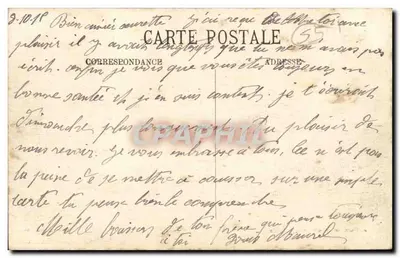 2-10-15 Bien aimée J'ai reçu
CARTE POSTALE
55
plaisir il y avait longtemps que tu ne m'avais pas
CORRESPONDANCE ADRESSE
écrit. enfin je vois que vous êtes toujours en
bonne santé et j'en suis content. je t'écrirai
dimanche plus longuement. Au plaisir de
nous revoir. je vous embrasse à tous, ce n'est pas
la peine de se mettre à causer sur une simple
carte tu peux bien le comprendre
Mille baisers de ton frère qui pense toujours
à toi
CPAPHIL